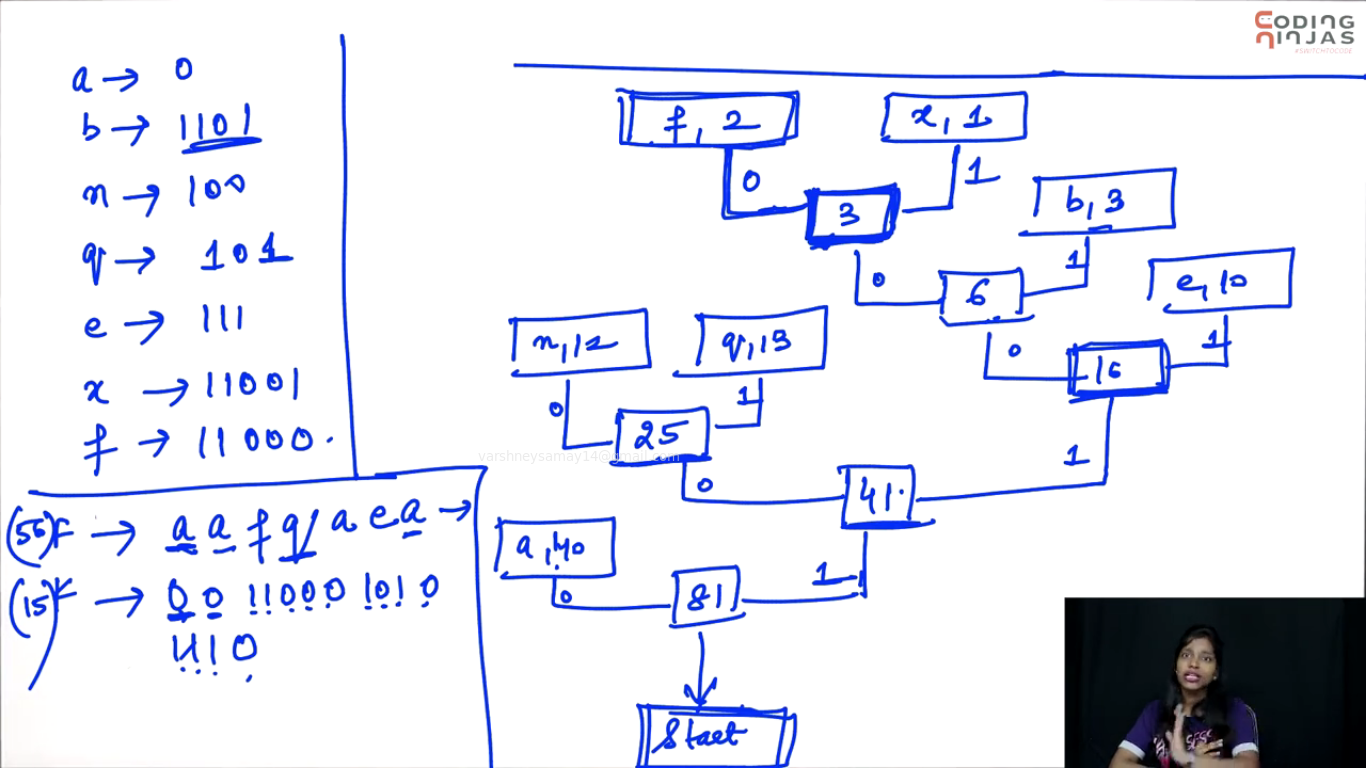 CODING
NINJAS
#SWITCHTOCODE
a → 0
b → 1101
n → 100
q → 101
e → 111
x → 11001
f → 11000.
(56)F → a a f q/ a e a →
(15)K → 0 0 11000 101 0
111 0
f, 2
x, 1
0
1
3
b, 3
0
1
6
e, 10
0
1
16
n, 12
q, 13
0
1
25
0
1
41.
a, 40
0
1
81
Start
varshneysamay14@gmail.com